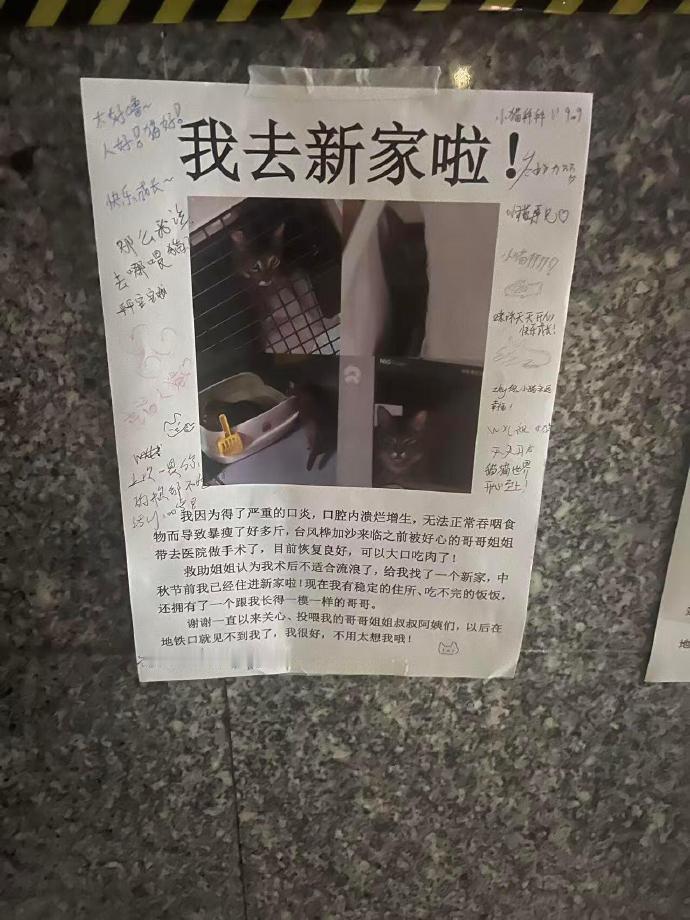 我去新家啦！
太好噜～
人好！猫好！
快乐成长～
那么我该
去哪喂
小猫拜拜
小猫再见♡
咪咪天天开心
快乐成长！
幸福！
天天开心
猫猫世界
开心至上！
我因为得了严重的口炎，口腔内溃烂增生，无法正常吞咽食
物而导致暴瘦了好多斤，台风桦加沙来临之前被好心的哥哥姐姐
带去医院做手术了，目前恢复良好，可以大口吃肉了！
救助姐姐认为我术后不适合流浪了，给我找了一个新家，中
秋节前我已经住进新家啦！现在我有稳定的住所、吃不完的饭饭，
还拥有了一个跟我长得一模一样的哥哥。
谢谢一直以来关心、投喂我的哥哥姐姐叔叔阿姨们，以后在
地铁口就见不到我了，我很好，不用太想我哦！